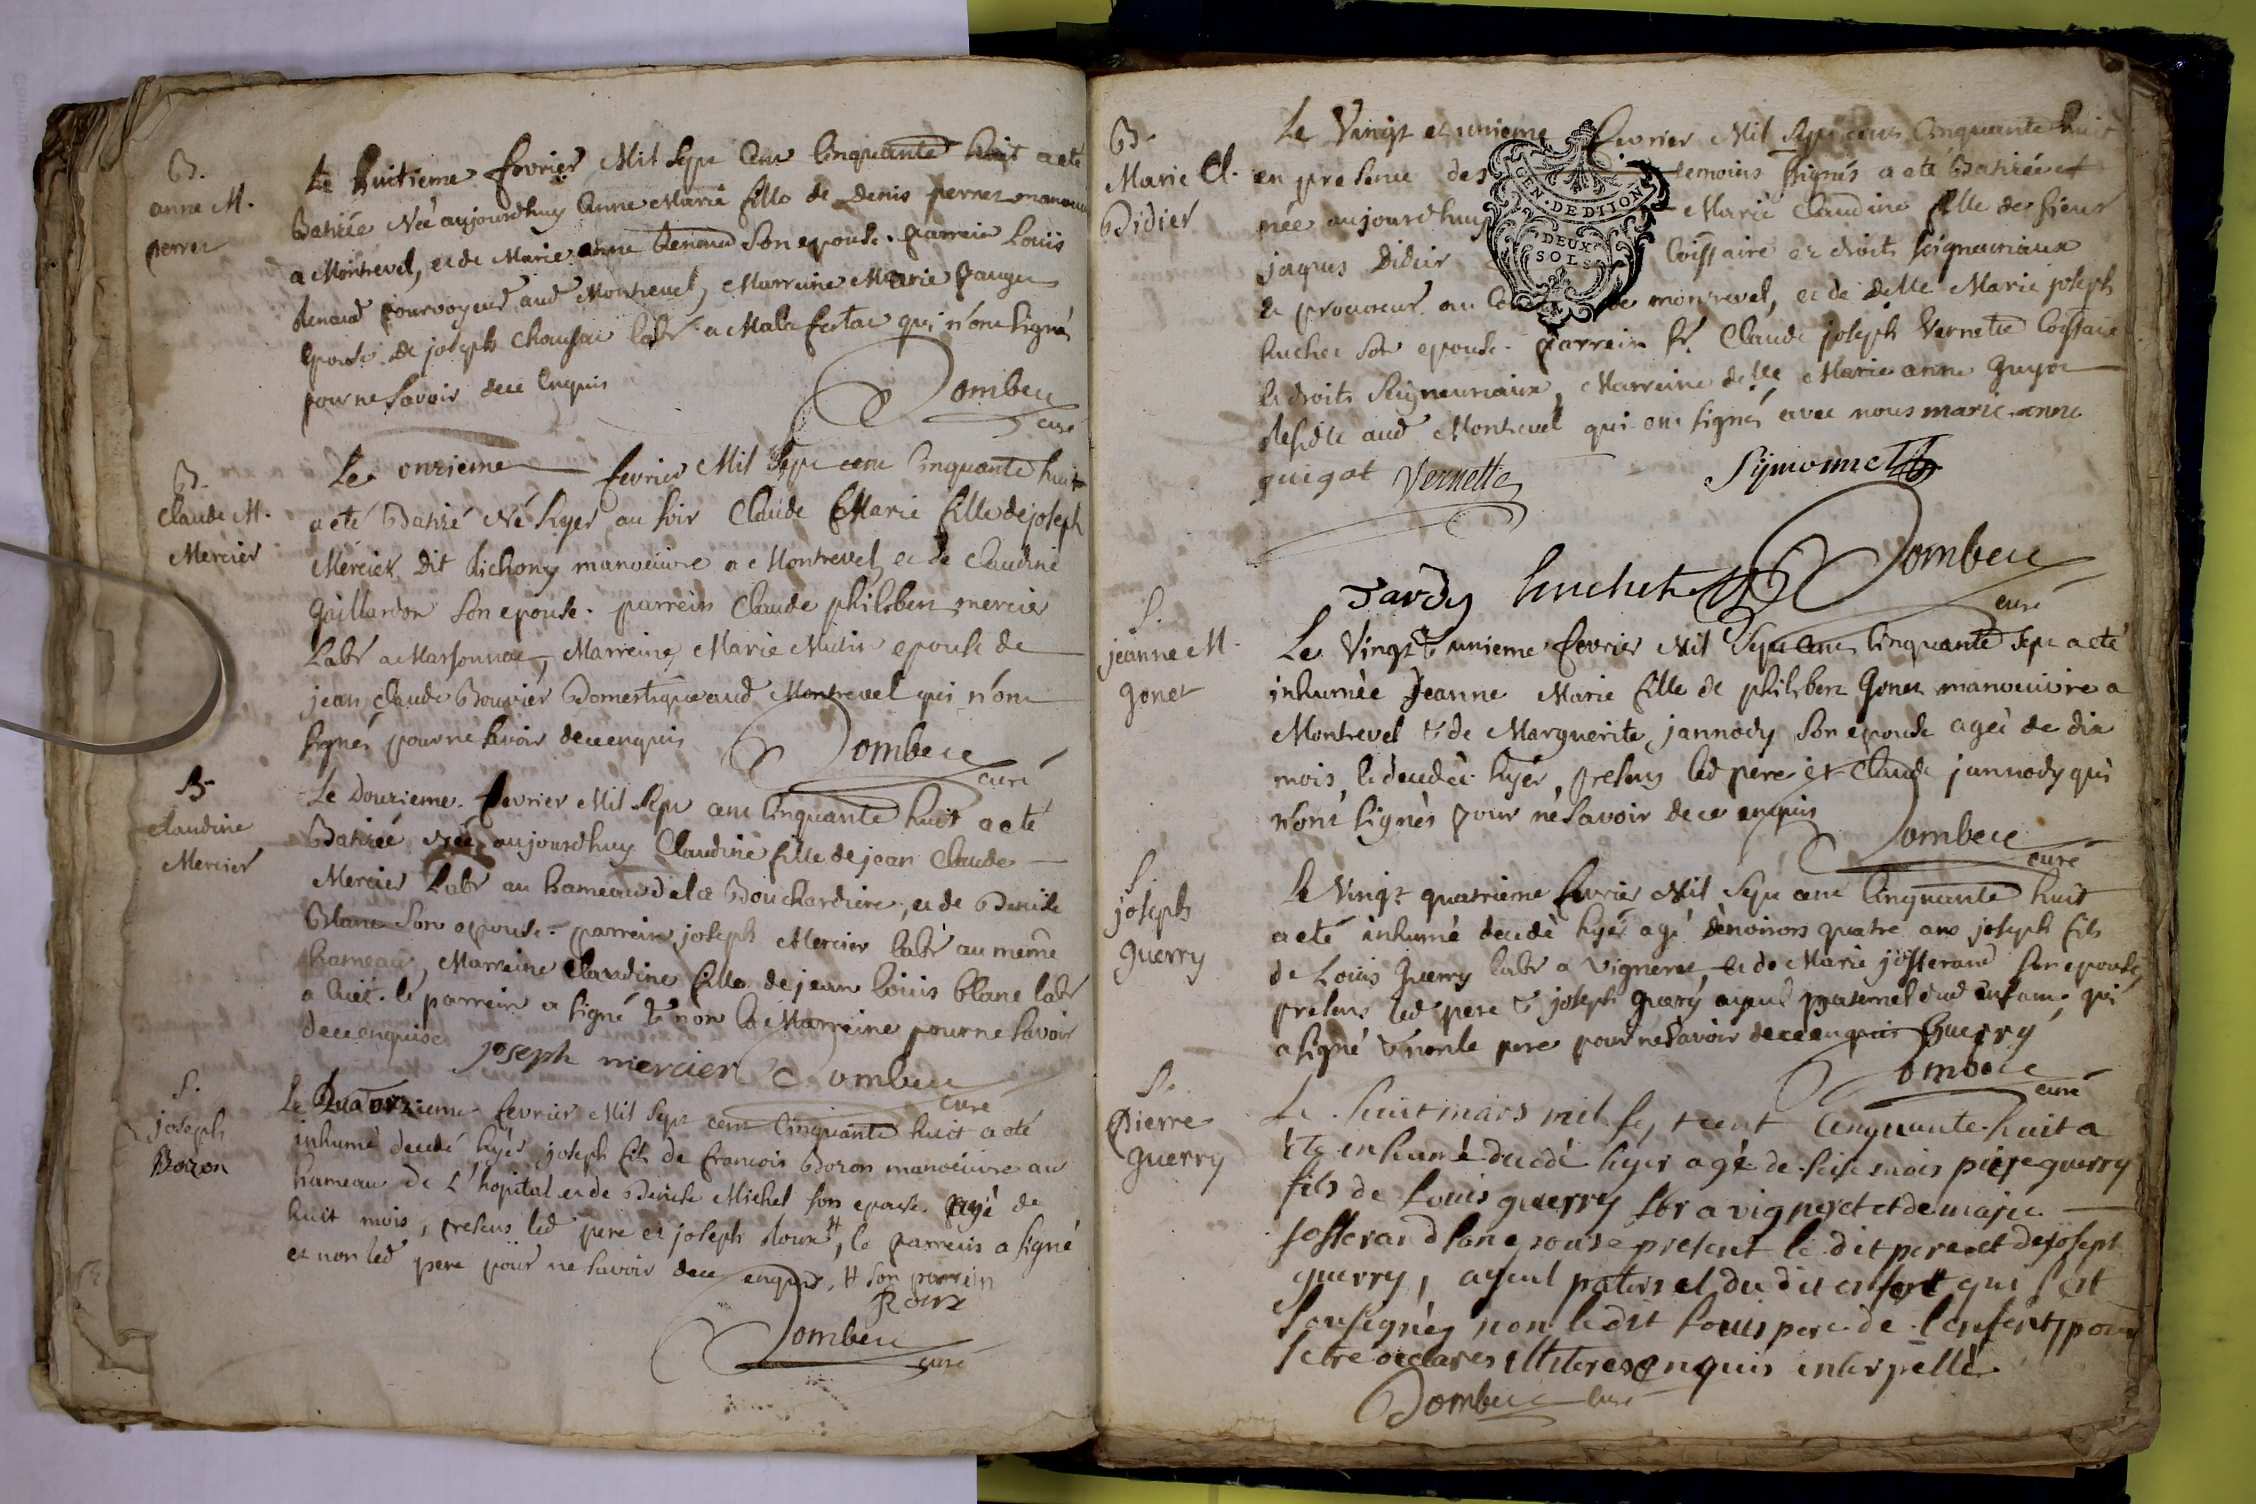 B.
anne M.
perret
Le huitieme fevrier Mil sept Cent Cinquante huit a eté
Batisée Née aujourdhuy Anne Marie fille de Denis perret manouv
a Montrevel, et de Marie anne Renaud Son epouse. parrein Louis
Renaud pourvoyeur aud Montrevel, Marreine Marie
Epouse de joseph labr a Malafertae qui n'ont signé
pour ne savoir de ce Enquis
Dombece
curé
B.
Claude M.
Mercier
Le onzieme fevrier Mil Sept cent Cinquante huit
a eté Batisé Né hyer au soir Claude Marie fille de joseph
Mercier Dit Lichony manoeuvre a Montrevel, et de Claudine
Gaillardon Son epouse. parrein Claude philibert mercier
Labr a Marsonnae, Marreine Marie Mutin epouse de
jean claude Bouvier Domestique aud Montrevel qui n'ont
signés pour ne savoir de ce enquis
Dombece
curé
B.
Claudine
Mercier
Le Douzieme fevrier Mil Sept cent Cinquante huit a eté
Batisée Née aujourdhuy Claudine fille de jean Claude
Mercier Labr au hameau de la Bouchardiere, et de Denise
Blanc Son epouse. parrein joseph Mercier labr au même
hameau, Marreine Claudine fille de jean Louis blanc labr
a Cuet. le parrein a signé & non la Marreine pour ne savoir
de ce enquise
joseph mercier Dombece
curé
S.
joseph
Bozon
Le Quatorzieme fevrier Mil Sept cent Cinquante huit a eté
inhumé decedé hyer joseph fils de francois Bozon manoeuvre au
hameau de L'hopital et de Denise Michel son epouse agé de
huit mois, presens led pere et joseph Roux #, le parrein a signé
et non led pere pour ne savoir de ce enquis. # son parrein
Roux
Dombece
curé
B.
Marie Cl.
Didier
Le Vingt et unieme fevrier Mil Sept cens Cinquante huit
en presence des temoins signés a eté Batisée et
GEN. DE DIJON
née aujourdhuy Marie Claudine fille de sieur
DEUX
SOLS
jaques Didier Coissaire ez droits seigneuriaux
et procureur au de montrevel, et de delle Marie joseph
huchet son epouse. parrein sr. Claude joseph Vernette Coissaire
ez droits Seigneuriaux, Marreine delle Marie anne Guyot
Residte aud Montrevel qui ont signés avec nous marie anne
guigot Vernette Symonnet
Tardy huchet Dombece
curé
S.
jeanne M.
gonet
Le Vingt & unieme fevrier Mil Sept Cent Cinquante sept a eté
inhumée Jeanne Marie fille de philibert Gonet manoeuvre a
Montrevel & de Marguerite jannody son epouse ageé de dix
mois, decedée hyer, presens led pere et Claude jannody qui
n'ont signés pour ne savoir de ce enquis
Dombece
curé
S.
joseph
guerry
Le Vingt quatrieme fevrier Mil Sept cent Cinquante huit
a eté inhumé decedé hyer agé denviron quatre ans joseph fils
de Louis Guerry labr a Vigneret, et de Marie josserand son epouse
presens led pere & joseph Guery ayeul paternel dud enfant, qui
a signé & non le pere pour ne savoir de ce enquis Guerry
Dombece
curé
S.
Pierre
guerry
Le huit mars mil sept cent Cenquante huit a
été enhumé decedé hyer agé de six mois pierre guerry
fils de Louis guerry lbr a vigneret et de marie
josserand son epouse present le dit pere et de joseph
guerry, ayeul paternel du dit enfant qui s'est
sousignés non le dit Louis pere de l'enfent, pour
setre declares illiteres enquis interpellé
Dombece curé